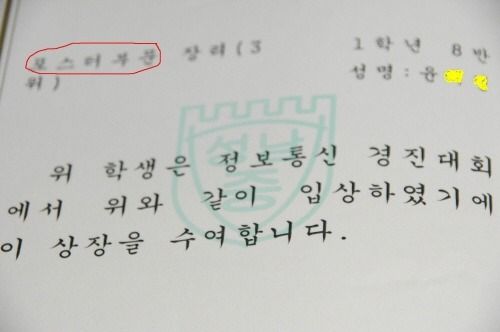 포스터부문 장려(3
위)
1학년 8반
성명:윤
위 학생은 정보통신 경진대회
에서 위와 같이 입상하였기에
이 상장을 수여합니다.
성남
중